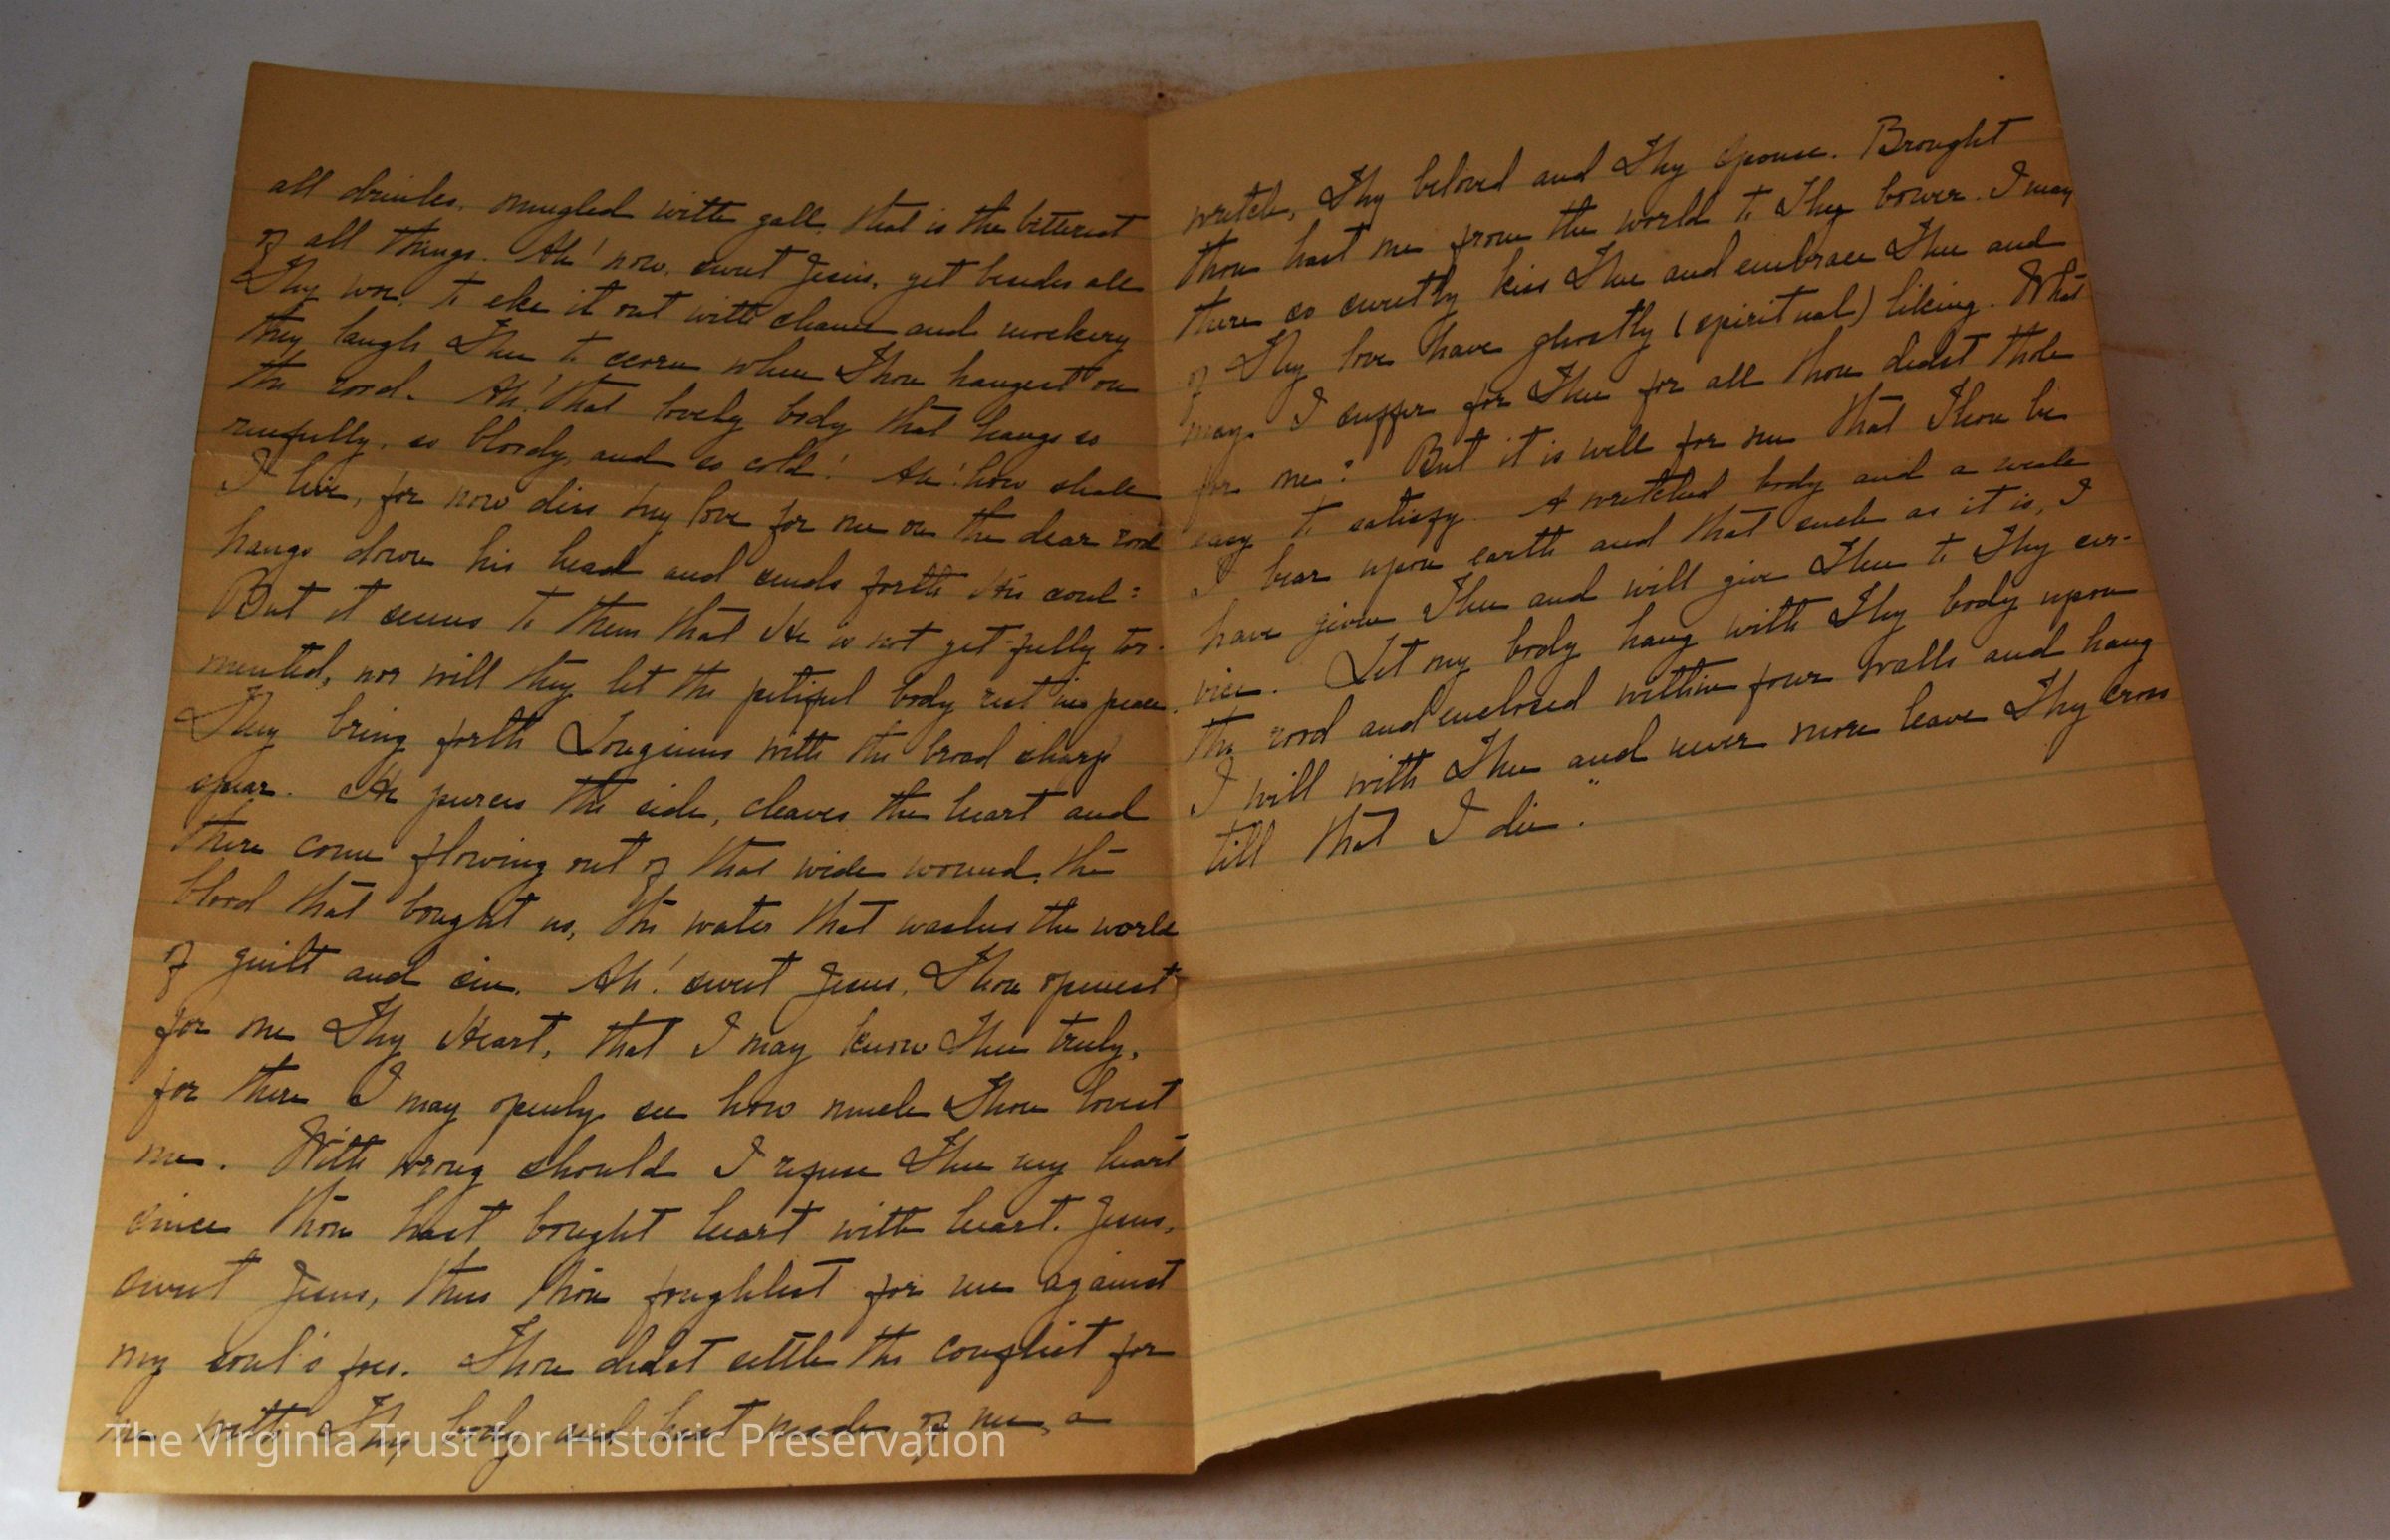 all drinks, mingled with gall, that is the bitterest
of all things. Ah! now, sweet Jesus, yet besides all
Thy woe, to eke it out with shame and mockery
they laugh Thee to scorn when Thou hangest on
the rood. Ah! that lovely body that hangs so
ruefully, so bloody, and so cold! Ah! how shall
I live, for now dies my love for me on the dear rood
hangs down his head and sends forth His soul:
But it seems to them that He is not yet fully tor-
mented, nor will they let the pitiful body rest in peace.
They bring forth Longinus with the broad sharp
spear. He pierces the side, cleaves the heart and
there come flowing out of that wide wound, the
blood that bought us, the water that washes the world
of guilt and sin. Ah! sweet Jesus, Thou openest
for me Thy Heart, that I may know Thee truly,
for there I may openly see how much Thou lovest
me. With wrong should I refuse Thee my heart
since Thou hast bought heart with heart. Jesus,
sweet Jesus, thus thou foughtest for me against
my soul's foes. Thou didst settle the conflict for
me with Thy body and hast made of me, a
wretch, Thy beloved and Thy spouse. Brought
Thou hast me from the world to Thy bower. I may
there so sweetly kiss Thee and embrace Thee and
of Thy love have ghostly (spiritual) liking. What
may I suffer for Thee for all thou didst thole
for me? But it is well for me that Thou be
easy to satisfy. A wretched body and a weak
I bear upon earth and that such as it is, I
have given Thee and will give Thee to Thy ser-
vice. Let my body hang with Thy body upon
the rood and enclosed within four walls and hang
I will with Thee and never more leave Thy cross
till that I die."
The Virginia Trust for Historic Preservation